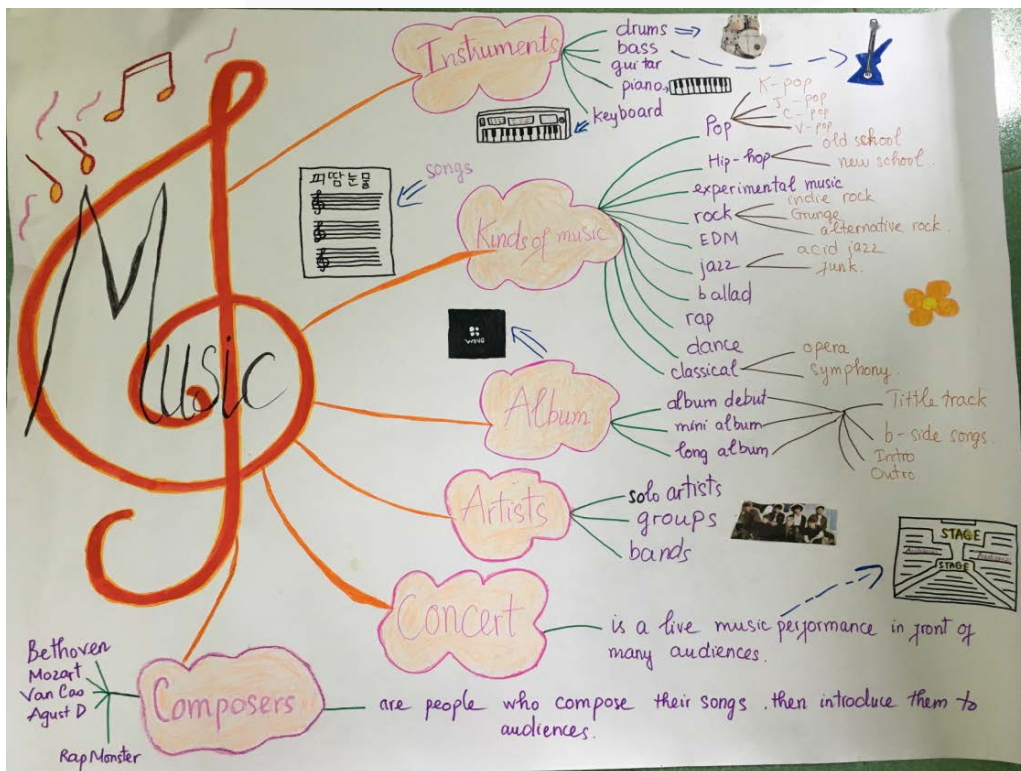 Music
Instruments
drums
bass
guitar
piano
keyboard
songs
피땀눈물
Kinds of music
Pop
K-pop
J-pop
C-pop
V-pop
Hip-hop
old school
new school.
experimental music
rock
indie rock
Grunge
alternative rock.
EDM
jazz
acid jazz
Junk.
ballad
rap
dance
classical
opera
symphony.
WING
Album
album debut
mini album
long album
Tittle track
b-side songs.
Intro
Outro
Artists
solo artists
groups
bands
STAGE
STAGE
Concert
is a live music performance in front of
many audiences.
Composers
are people who compose their songs. then introduce them to
audiences.
Bethoven
Mozart
Van Cao
Agust D
Rap Monster